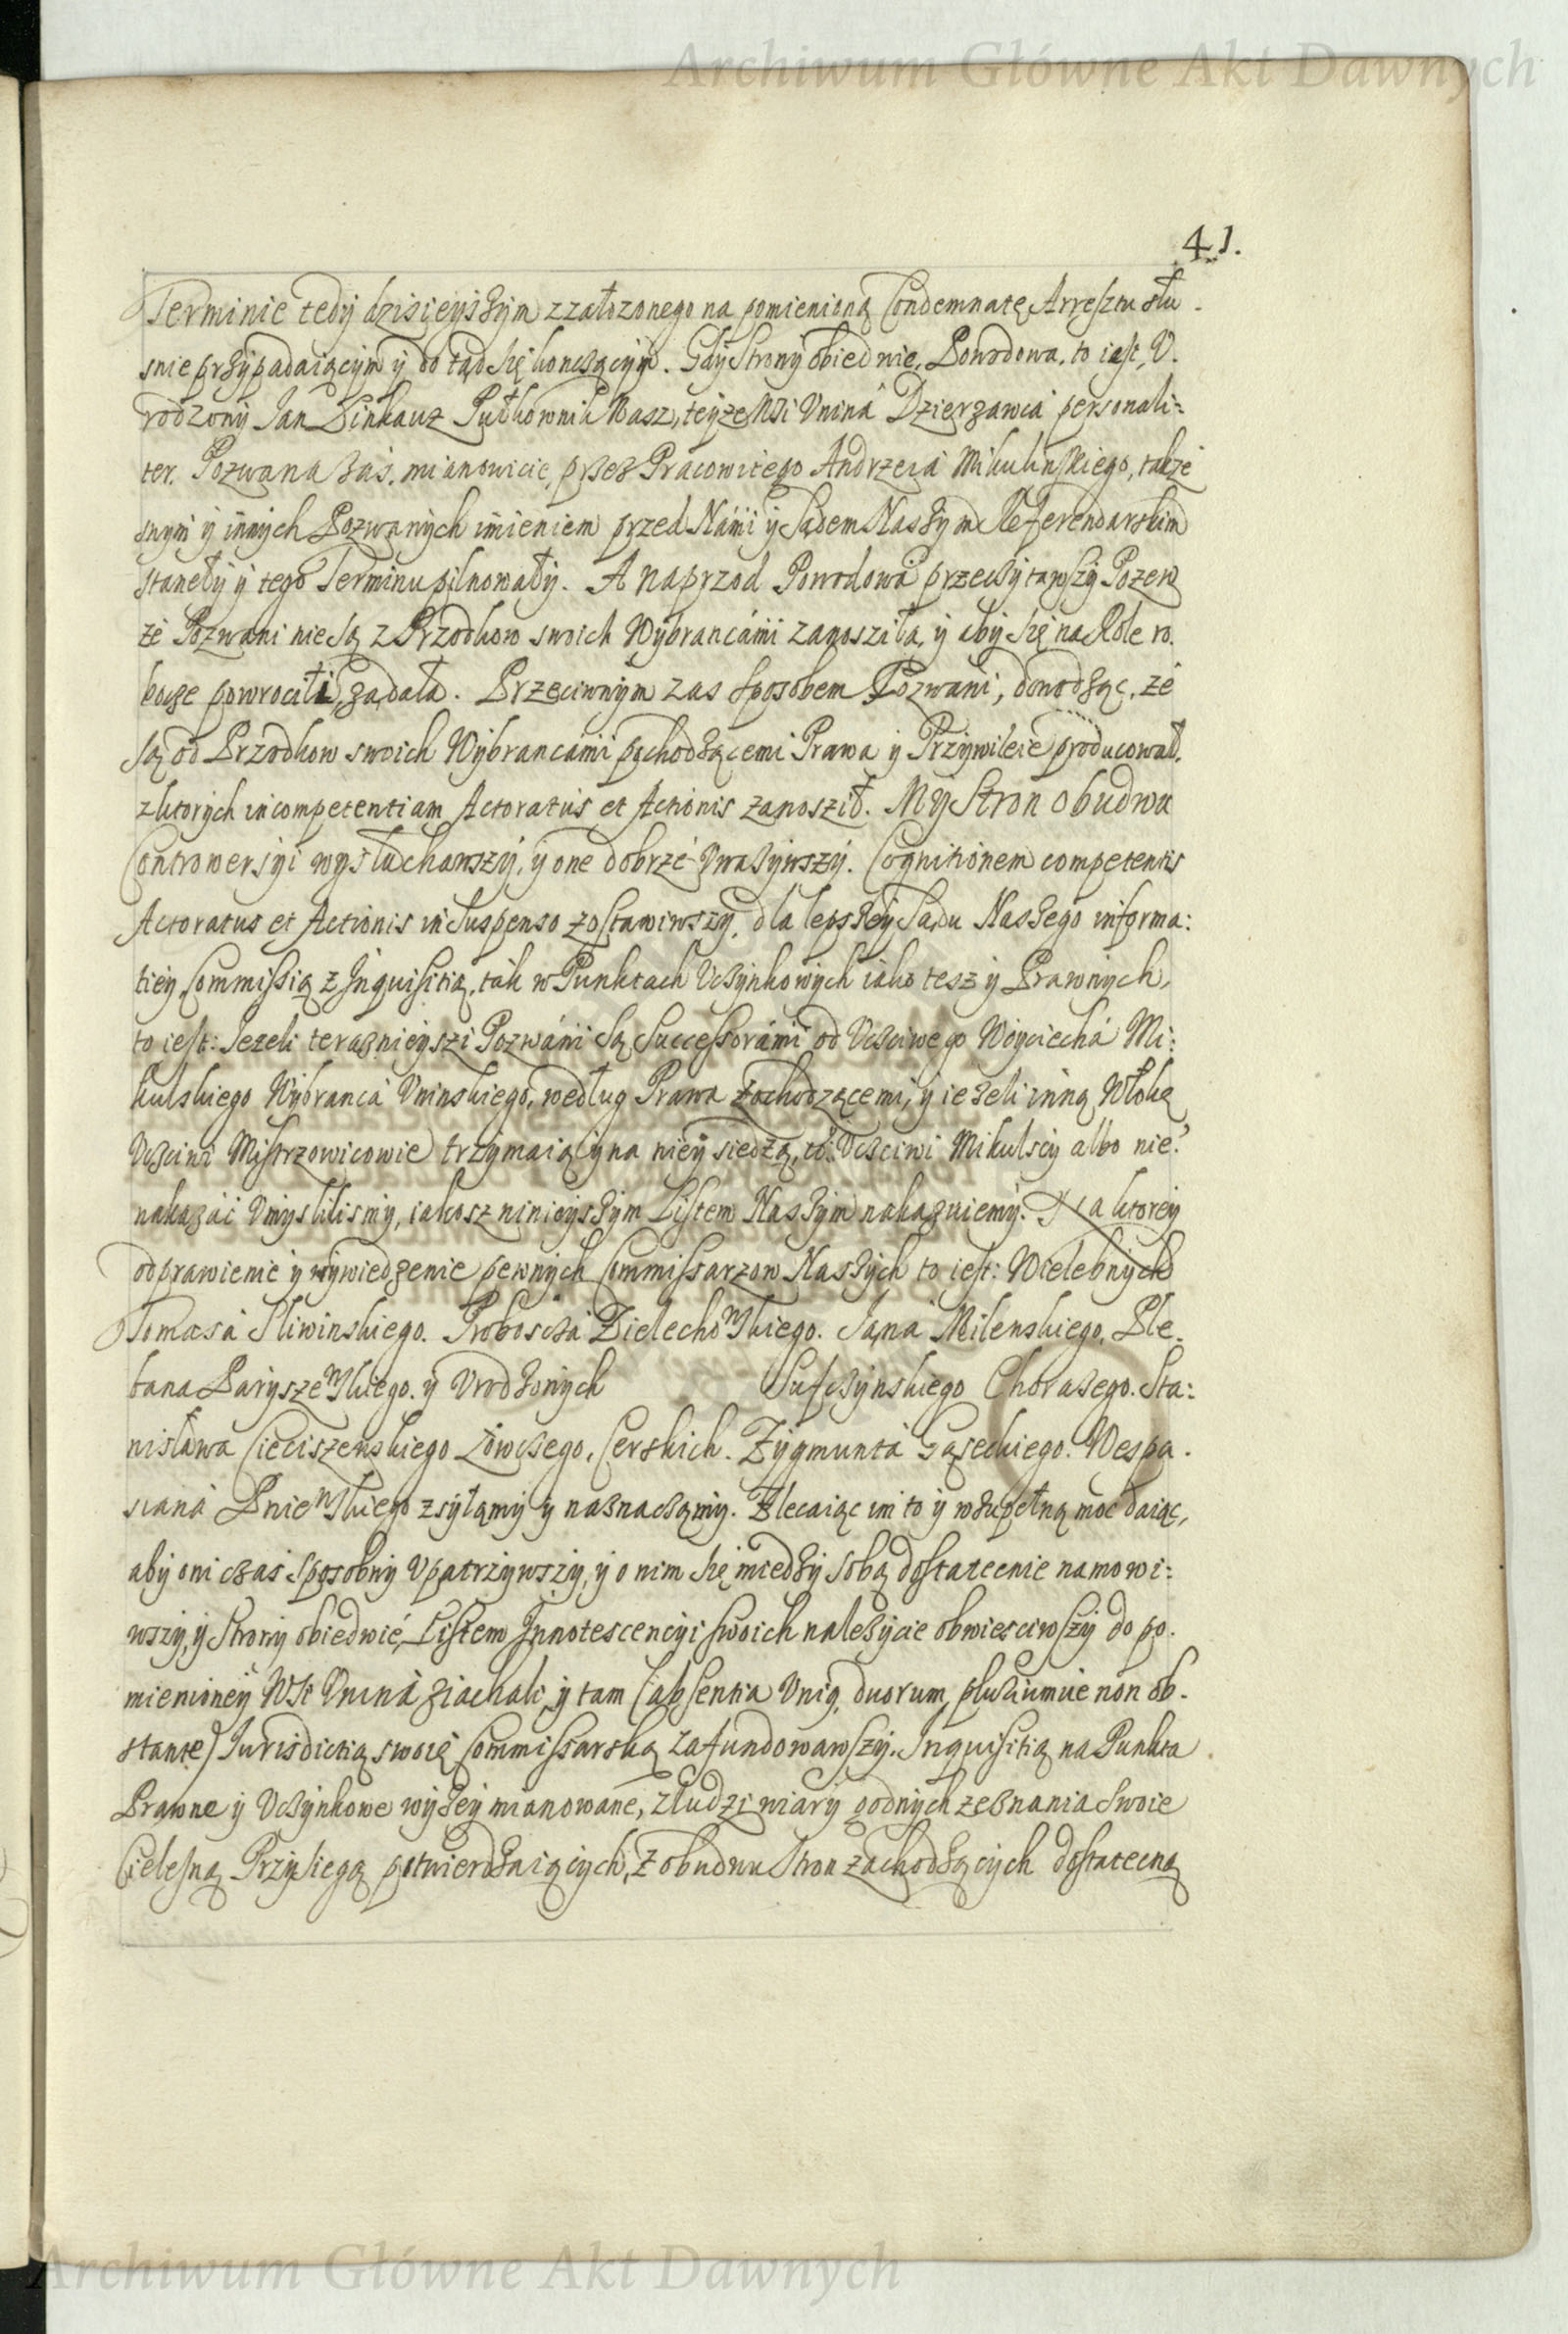 Archiwum Główne Akt Dawnych
41.
Terminie tedy dzisieyszym z załozonego na pomienioną Condemnatę Arresztu słu-
snie przypadaiącym y do tąd się konczącym. Gdy Strony obiedwie, Powodowa, to iest, V-
rodzony Jan Linkauz Pułkownik Nasz, teyze Wsi Vnina Dzierzawca personali-
ter. Pozwana zaś, mianowicie, przez Pracowitego Andrzeia Mikulinskiego, także
snym y innych Pozwanych imieniem przed Námi y Sądem Naszym Referendarskim
staneły y tego Terminu pilnowały. A naprzod Powodowa przeczytawszy Pozew
że Pozwani nie są z Przodkow swoich Wybrancámi zanosziła, y aby się na Role ro-
bocze powrocili, ządała. Przeciwnym zas sposobem Pozwani, donodząc, że
są od Przodkow swoich Wybrancámi pochodzącemi Prawa y Przywileie producował,
z ktorych incompetentiam Actoratus et Actionis zanosził. My Stron obudwu
Controwersyi wysłuchawszy, y one dobrze vwazywszy. Cognitionem competentis
Actoratus et Actionis in suspenso zostawiwszy, dla lepszey Sądu Naszego informa:
tiey, Commissią z Inquisitią, ták w Punktach Vczynkowych iako tesz y Prawnych,
to iest: Jezeli teraznieyszi Pozwáni są Successorámi od Vczciwego Woyciecha Mi:
kulskiego Wybranca Vninskiego, według Prawa zachodzącemi, y iezeli inną Włokę
Vczciwi Mistrzowicowie trzymaią y na niey siedzą, Vczciwi Mikulscy albo nie?
nakazáć Vmyslilismy, iakosz ninieyszym Listem Naszym nakazuiemy. Na ktorey
odprawienie y wywiedzenie pewnych Commissarzow Naszych to iest: Wielebnych
Tomasa Sliwinskiego. Probosczá Zielechowskiego. Jana Milenskiego, Ple-
bana Paryszewskiego. y Vrodzonych Sufczynskiego Chorazego. Sta:
nisława Cieciszenskiego Łowczego, Cerskich. Zygmuntá Sąseckiego. Wespa-
siana Pniewskiego zsyłamy y naznaczamy. Zlecaiąc im to y wzupełną moc daiąc,
aby oni czas sposobny Vpatrzywszy, y o nim się miedzy sobą dostatecnie namowi:
wszy, y Strony obiedwie, Listem Innotescencyi swoich nalezycie obwiesciwszy do po-
mienioney Wsi Vnina ziachali, y tam (absentia Vnią, duorum, plurium ue non ob-
stante) Jurisdictią swoię Commissarską zafundowawszy. Inquisitią na Punkta
Prawne y Vczynkowe wyzey mianowane, z ludzi wiary godnych zeznania swoie
Cielesną Przysiegą potwierdzaiących, z obudwu Stron zachodzących dostatecną
Archiwum Główne Akt Dawnych